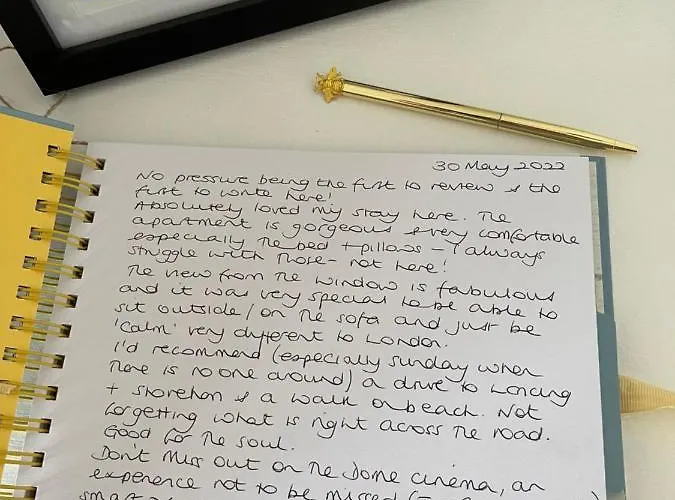 30 May 2022
No pressure being the first to review & the
first to write here!
Absolutely loved my stay here. The
apartment is gorgeous & very comfortable
especially the bed + pillows - I always
struggle with those - not here!
The view from the window is fabulous
and it was very special to be able to
sit outside / on the sofa and just be
'calm' very different to London.
I'd recommend (especially Sunday when
there is no one around) a drive to Lancing
+ Shoreham & a walk on beach. Not
forgetting what is right across the road.
Good for the soul.
Don't miss out on the Dome cinema, an
experience not to be missed